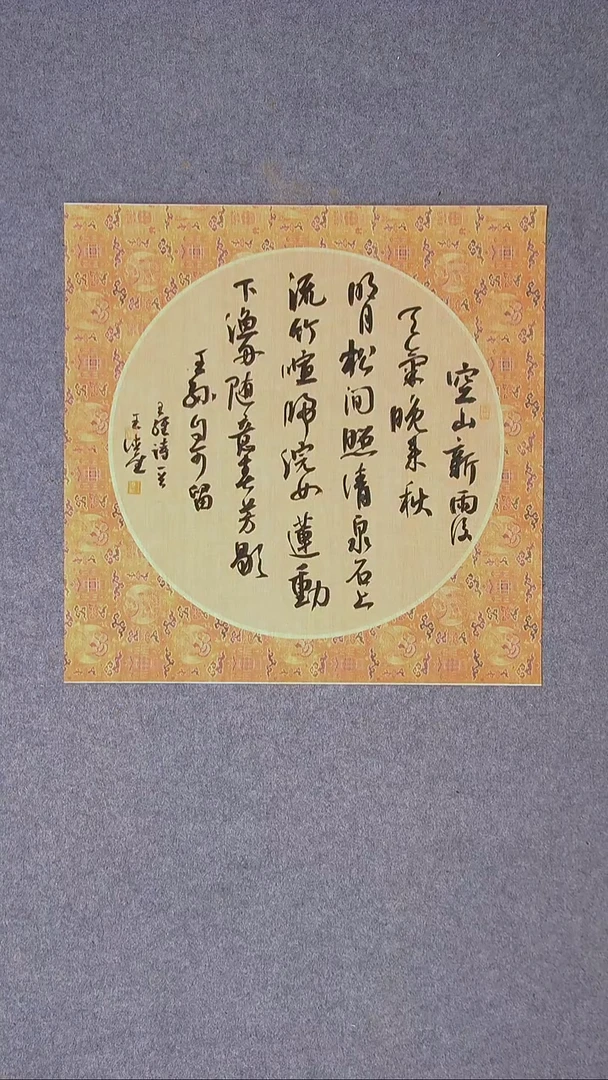 空山新雨後
天氣晚来秋
明月松间照清泉石上
流竹喧歸浣女蓮動
下漁舟随意春芳歇
王孫自可留
王維詩一首
王